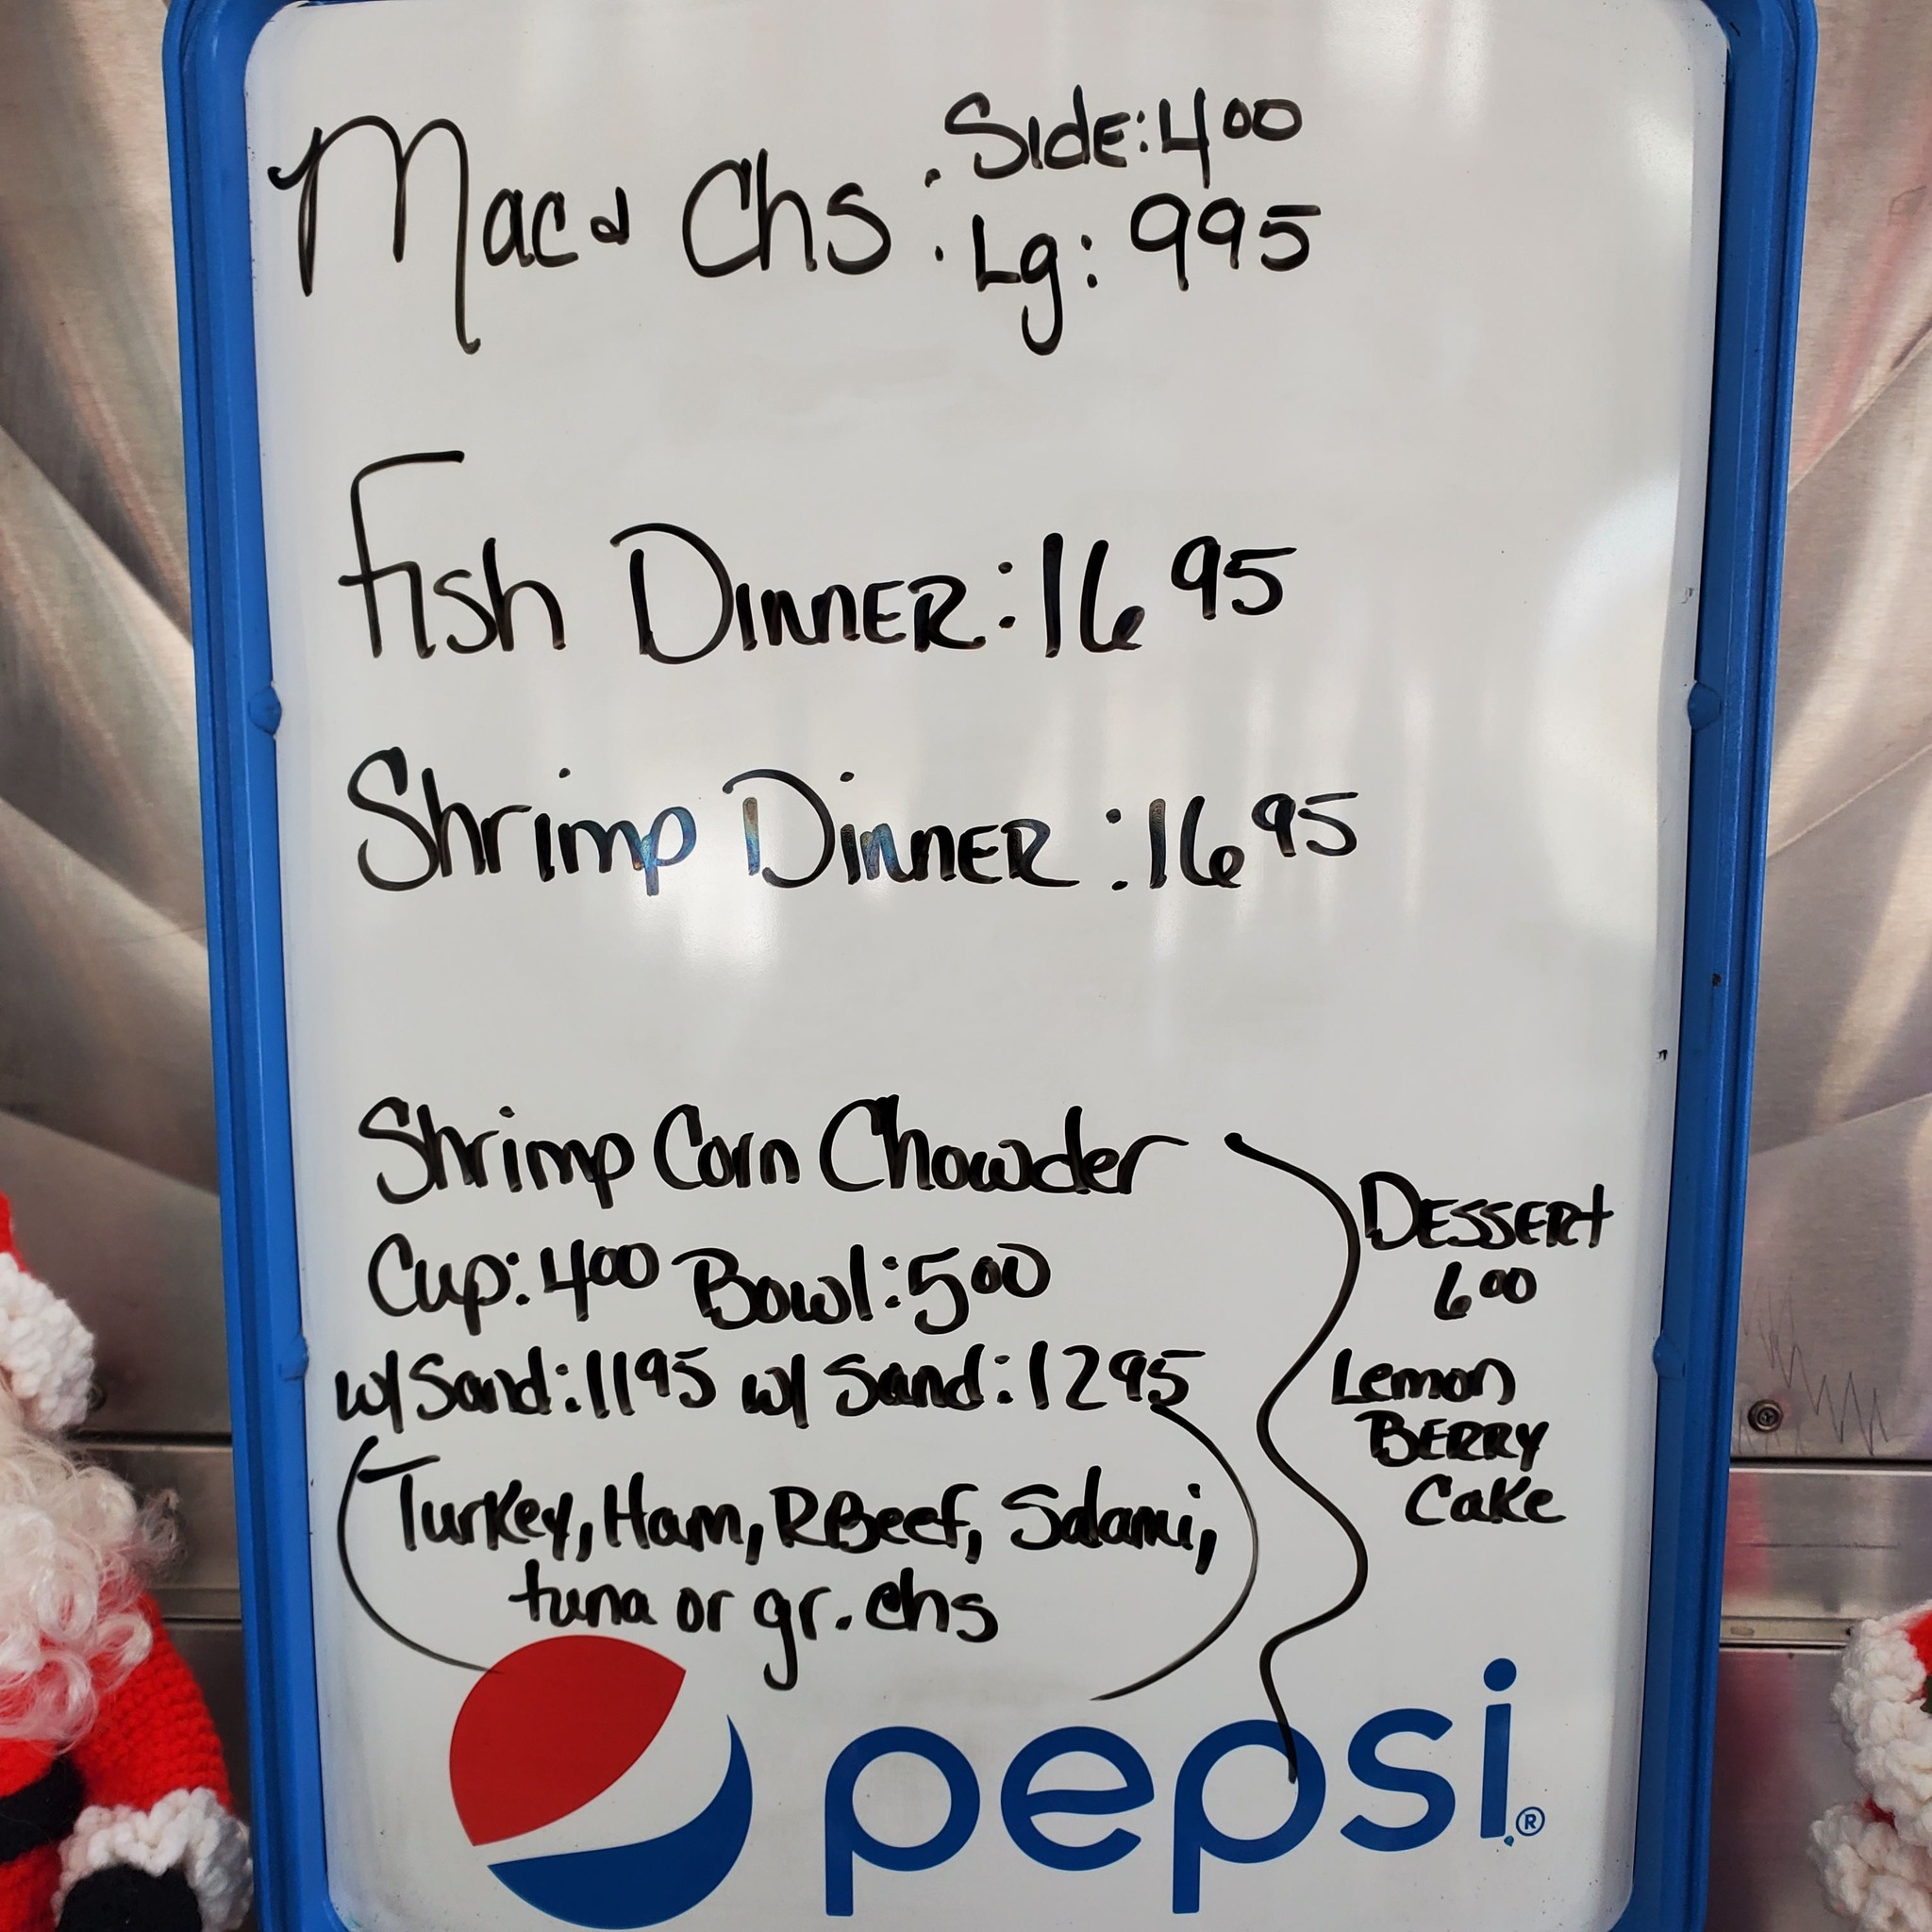 Mac & Chs : Side: 4 00
Lg: 9 95
Fish Dinner: 16 95
Shrimp Dinner: 16 95
Shrimp Corn Chowder
Cup: 4 00 Bowl: 5 00
w/ Sand: 11 95 w/ Sand: 12 95
(Turkey, Ham, R Beef, Salami,
tuna or gr. chs)
Dessert
6 00
Lemon
Berry
Cake
pepsi®